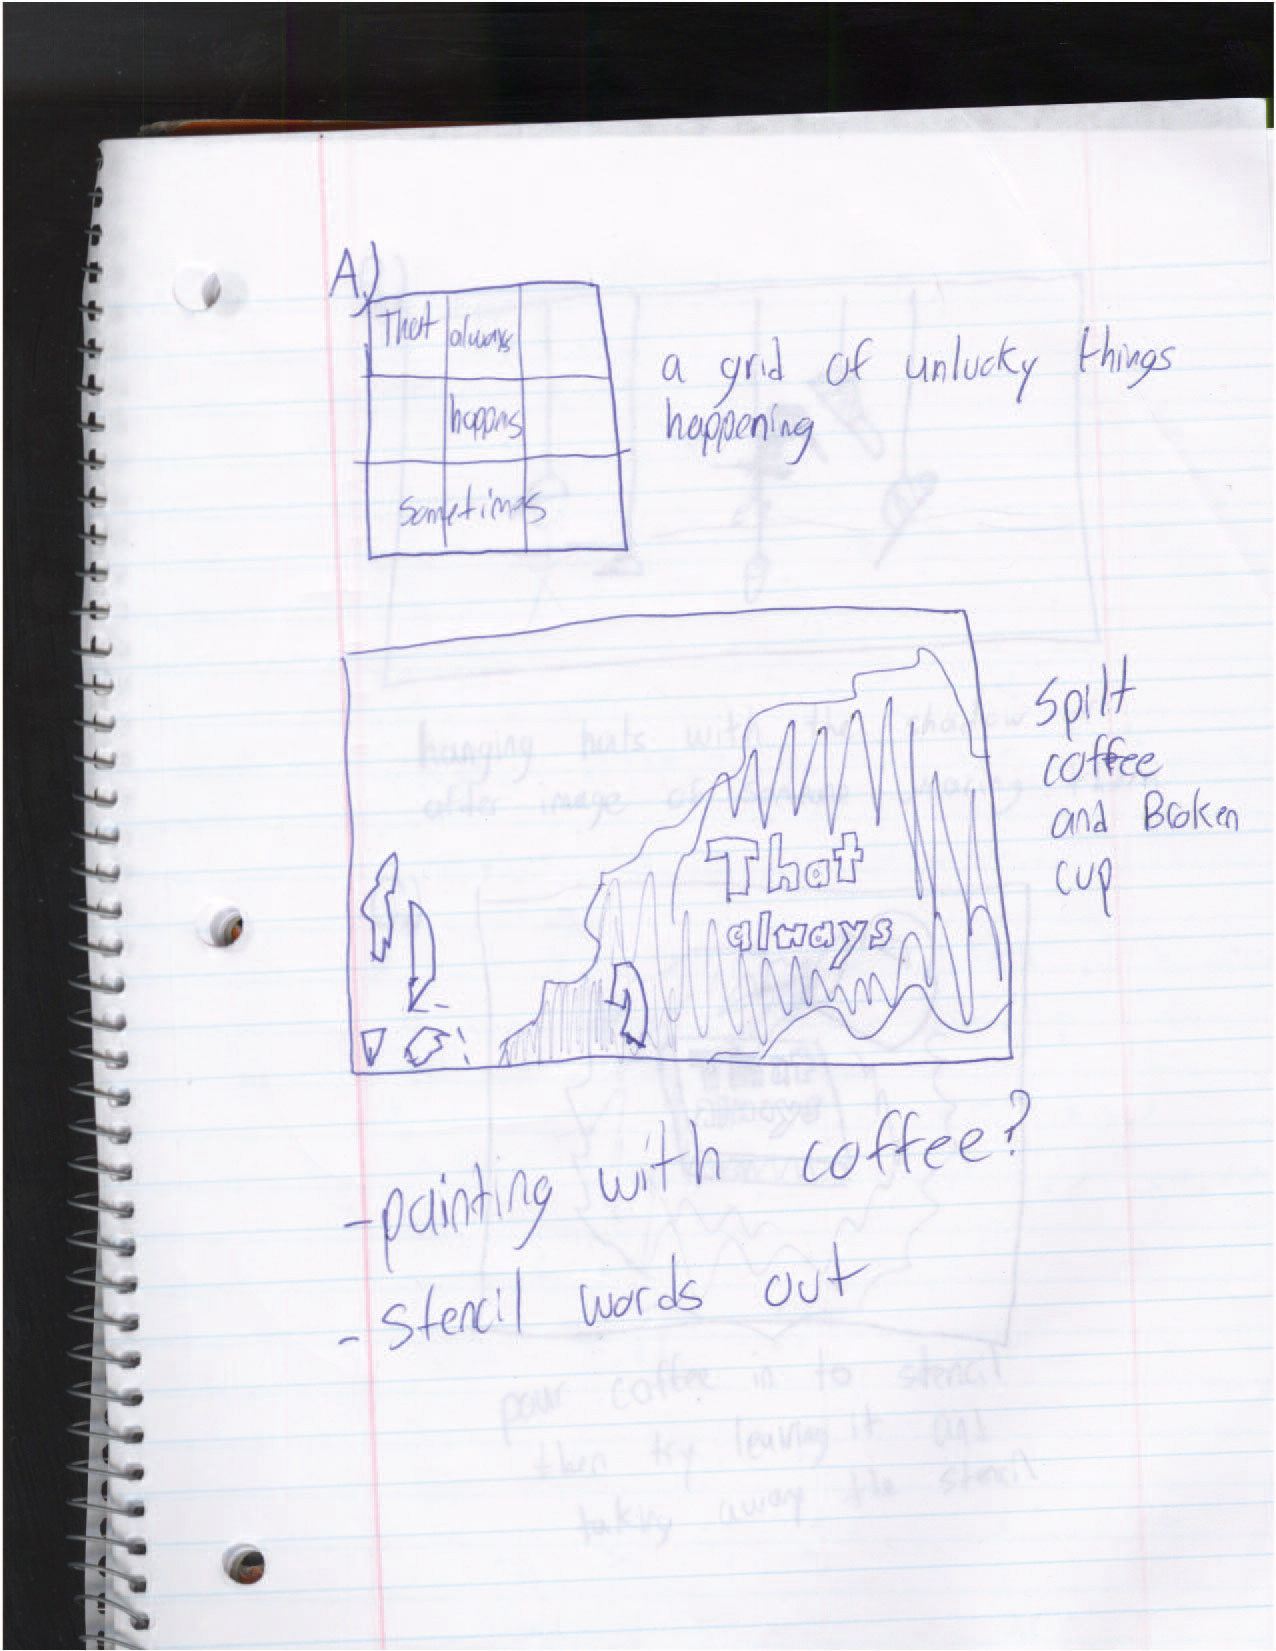 A)
That always
happns
sometimes
a grid of unlucky things
happening
Spilt
coffee
and Broken
cup
That
always
hanging hats with the shadow
after image of
- painting with coffee?
- stencil words out
pour coffee in to stencil
then try leaving it and
taking away the stencil